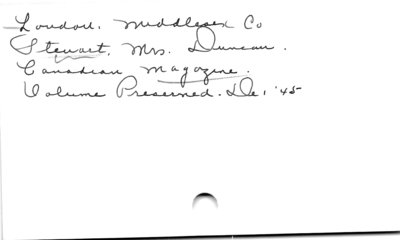 London. Middlesex Co
Stewart, Mrs. Duncan.
Canadian Magazine.
Volume Preserved. De, '45